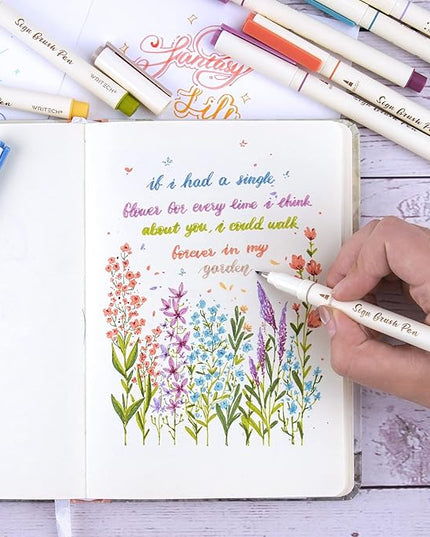 Sign Brush Pen
WRITECH
WRITECH
Fantasy
Sign Brush Pen
Sign Brush Pen
if i had a single
flower for every time i think
about you, i could walk
forever in my
garden
Sign Brush Pen